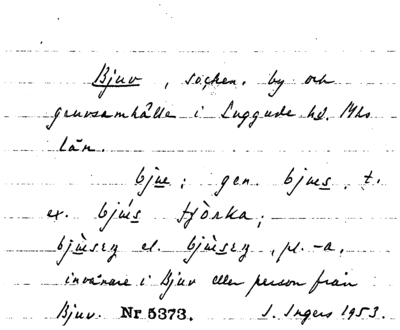 Bjuv, socken, by och
gruvsamhälle i Luggude hd. Mhs
län.
bjue; gen. bjues, t.
ex. bjúes tjòrka;
bjùesrz el. bjùesrz, pl. -a,
invånare i Bjuv eller person från
Bjuv. Nr 5373. I. Ingers 1953.